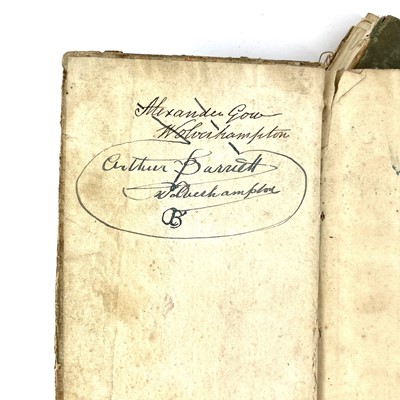 Alexander Gow
Wolverhampton
Arthur Barrett
Wolverhampton